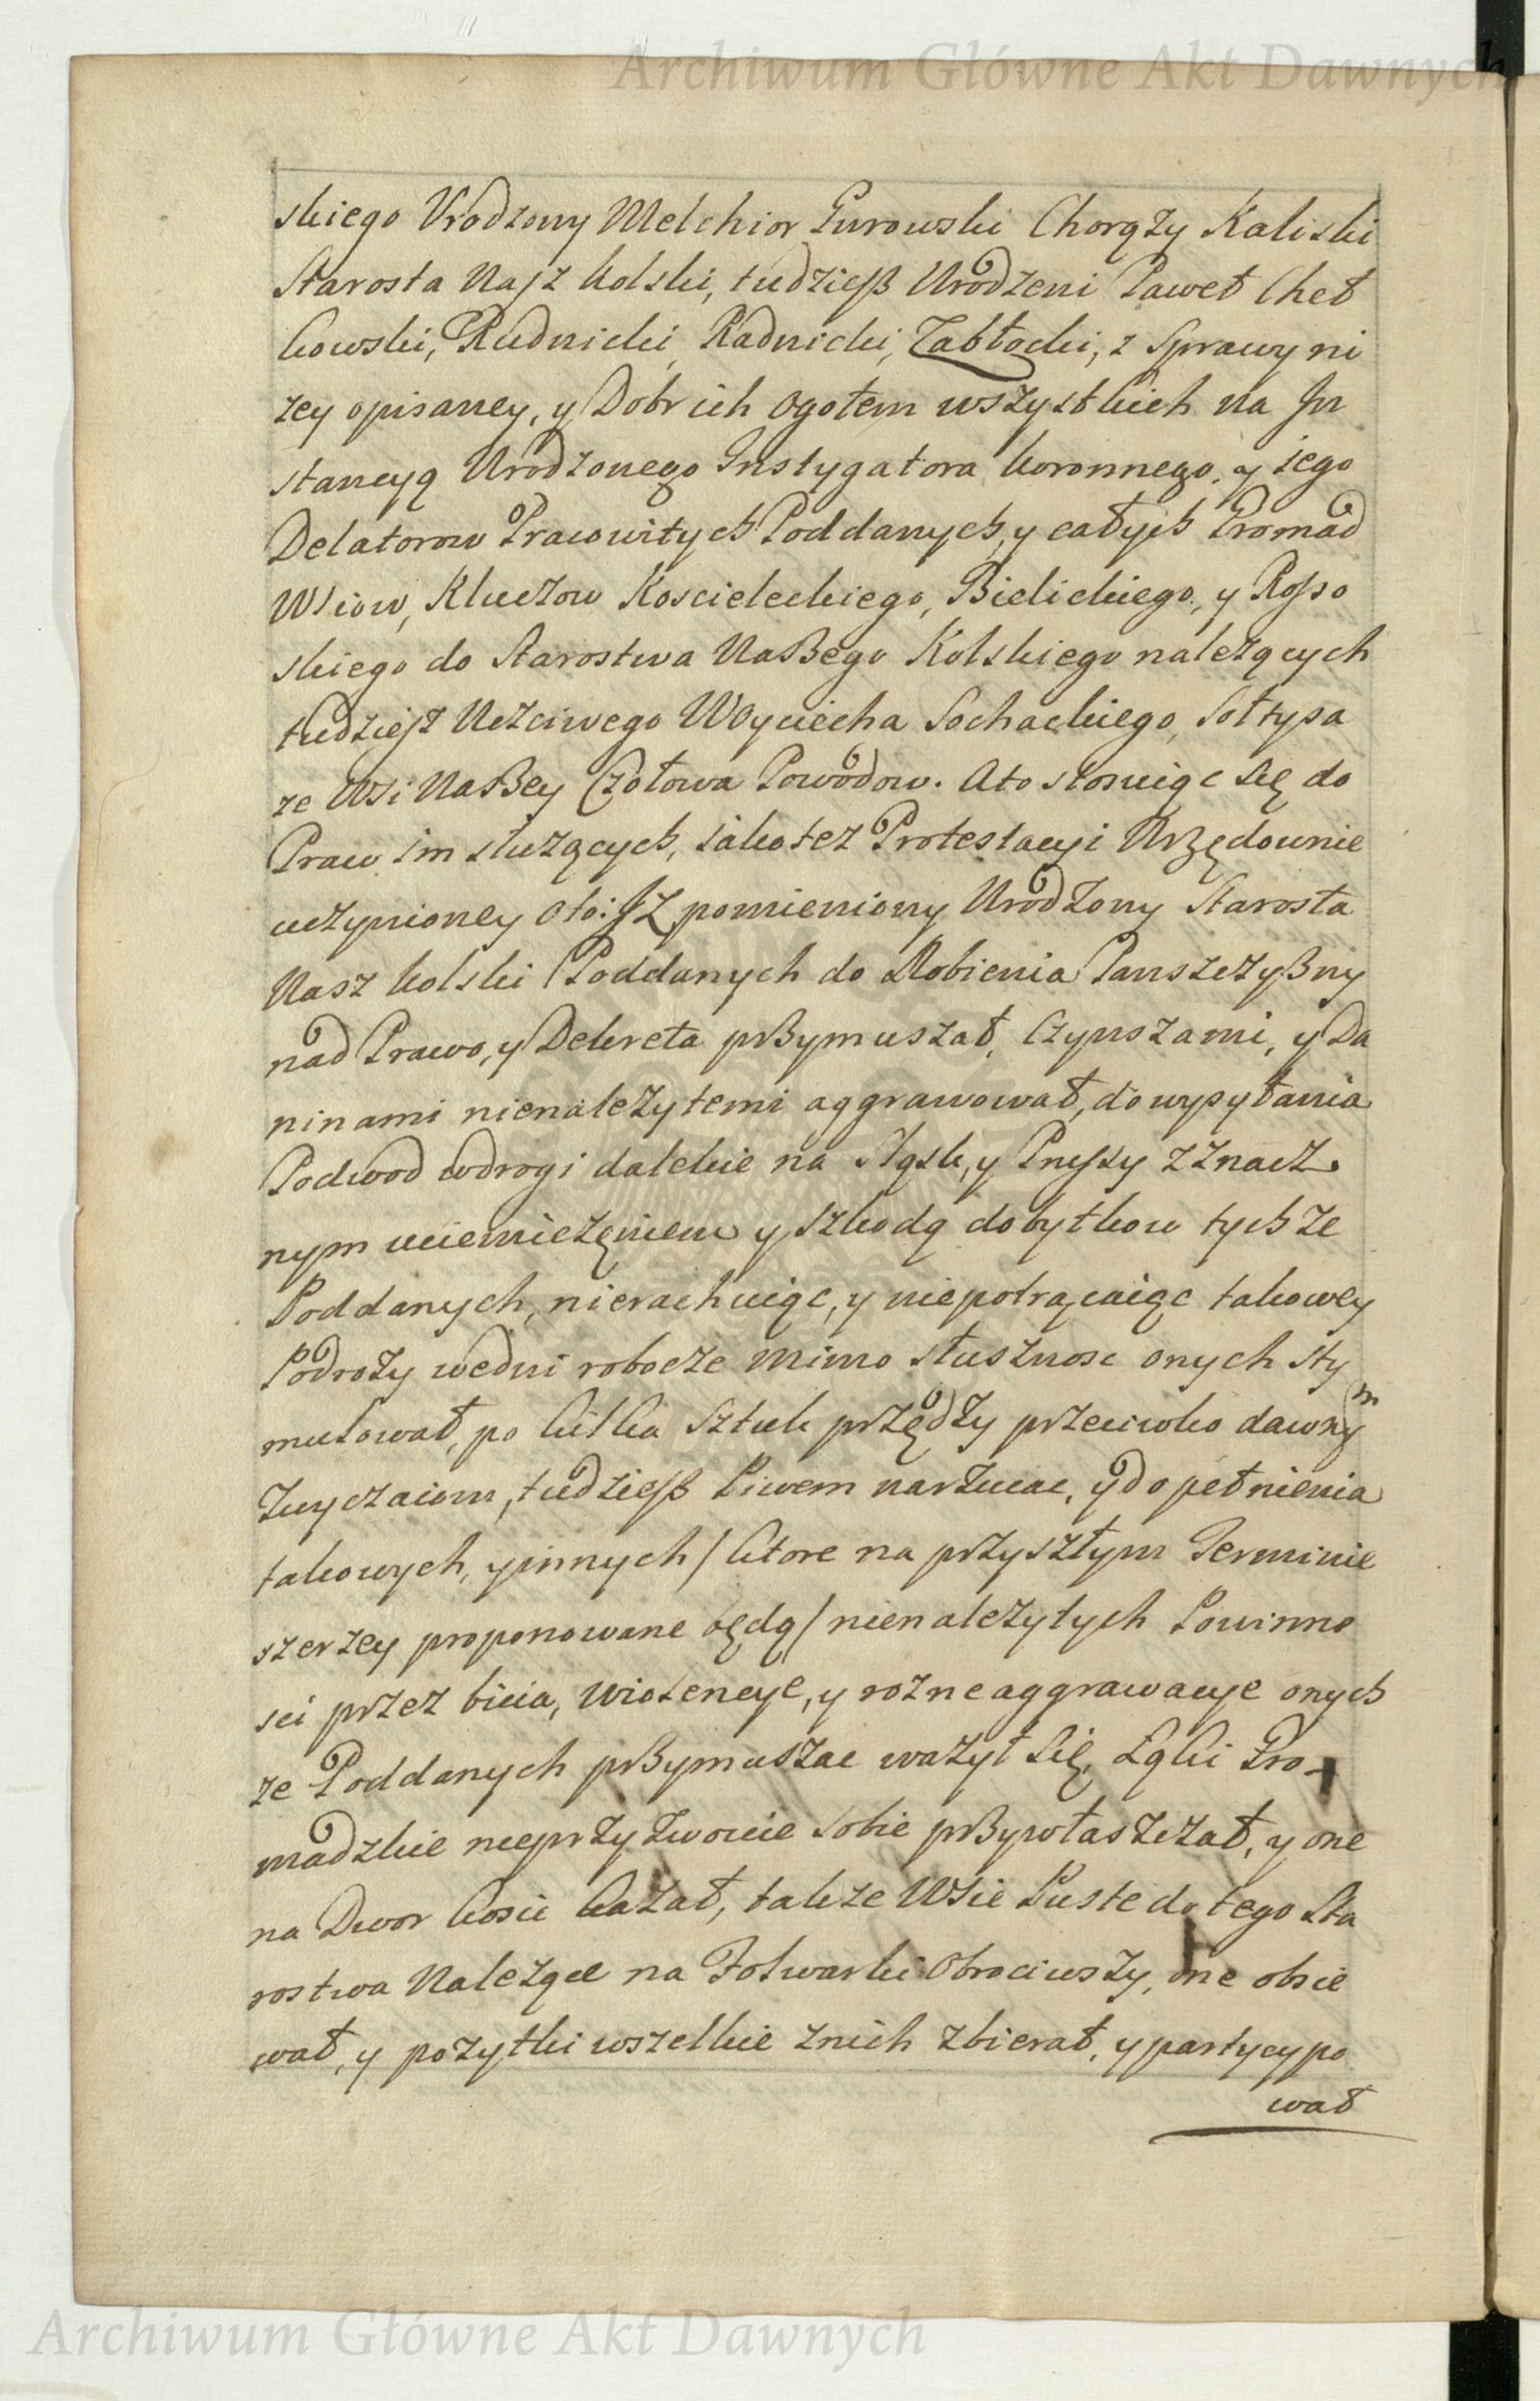 Archiwum Główne Akt Dawnych
skiego Urodzony Melchior Gurowski Chorąży Kaliski
Starosta Nasz Kolski, tudzieß Urodzeni Paweł Cheł
kowski, Rudnicki, Radnicki, Zabłocki, z Sprawy ni
zey opisaney, y Dobr ich ogołem wszystkich na In
stancyą Urodzonego Instygatora koronnego, y iego
Delatorow Pracowitych Poddanych, y całych Gromad
Wsiow, Kluczow Koscieleckiego, Bielickiego, y Rosso
skiego do Starostwa Naßego Kolskiego należących
tudziesz Uczciwego Woyciecha Sochackiego, Sołtysa
ze Wsi Naßey Czołowa Powodow. Ato stosuiąc się do
Praw im służących, iako też Protestacyi Urzędownie
uczynioney oto: Iż pomieniony Urodzony Starosta
Nasz kolski Poddanych do Robienia Panszczyßny
nad Prawo, y Dekreta pßymuszał, Czynszami, y Da
ninami nienależytemi aggrawował, do wysyłania
Podwod w drogi dalekie na Sląsk, y Prussy z znacz
nym uciemiężęniem y szkodą dobytkow tychże
Poddanych, nierachuiąc, y niepotrącaiąc takowey
Podroży we dni robocze mimo słusznosc onych sty
mulował, po kilka Sztuk przędzy przeciwko dawnym
Zwyczaiom, tudzieß Piwem narzucac, y do pełnienia
takowych, y innych / ktore na przyszłym Terminie
szerzey proponowane będą / nienależytych Powinno
sci przez bicia, wiolencye, y rożne aggrawacye onych
że Poddanych pßymuszac ważył się, Łąki Gro-
madzkie nieprzyzwoicie sobie pßywłaszczał, y one
na Dwor kosic kazał, także Wsie Puste do tego Sta
rostwa Należące na Folwarki Obrociwszy, one obsie
wał, y pożytki wszelkie z nich zbierał, y partycypo
wał
Archiwum Główne Akt Dawnych